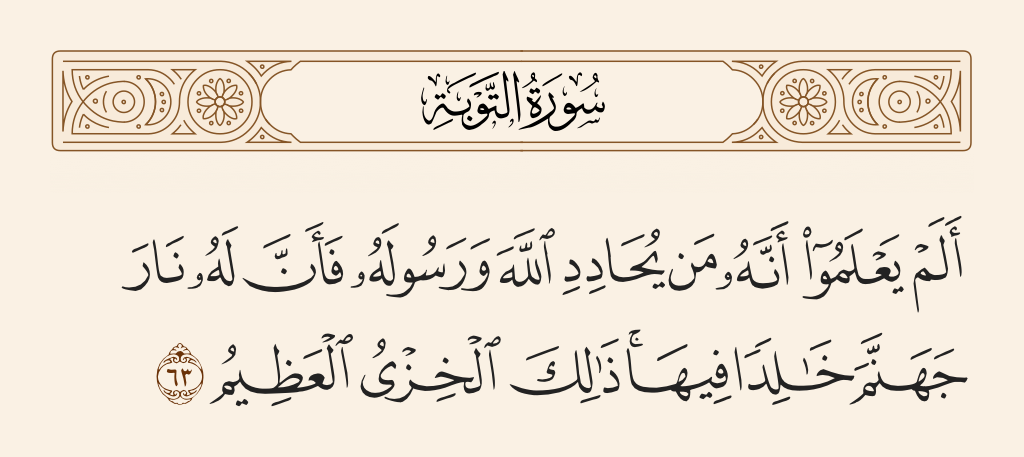 سُورَةُ التَّوۡبَةِ
أَلَمۡ يَعۡلَمُوٓاْ أَنَّهُۥ مَن يُحَادِدِ ٱللَّهَ وَرَسُولَهُۥ فَأَنَّ لَهُۥ نَارَ
جَهَنَّمَ خَٰلِدٗا فِيهَاۚ ذَٰلِكَ ٱلۡخِزۡيُ ٱلۡعَظِيمُ ٦٣